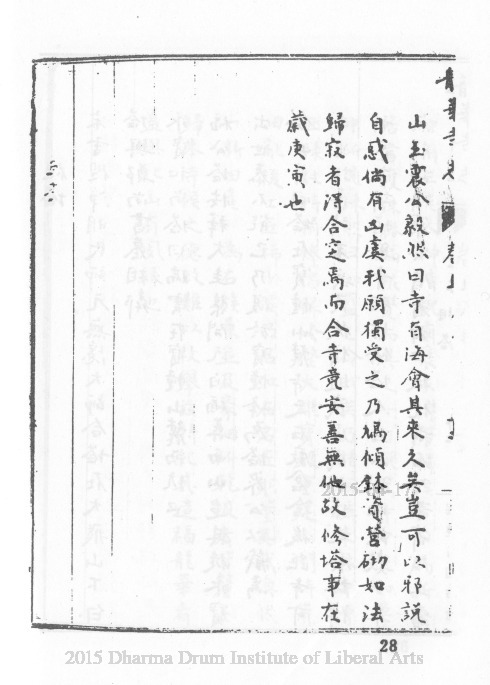 山主震公毅然曰寺有海會其來久矣豈可以邪說
自惑倘有山虞我願獨受之乃竭傾鉢資營砌如法
歸寂者溥合定焉而合寺竟安善無他故修塔事在
歲庚寅也
28
2015 Dharma Drum Institute of Liberal Arts